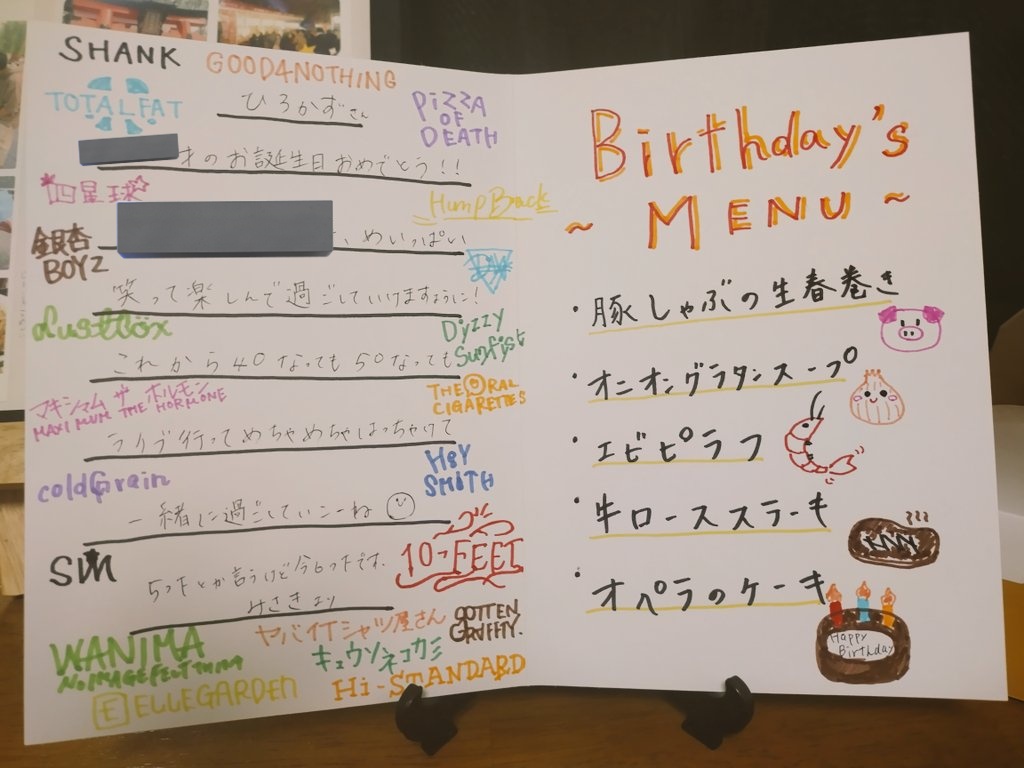 SHANK
GOOD4NOTHING
TOTALFAT
ひろかずさん
PIZZA
OF
DEATH
才のお誕生日おめでとう!!
四星球
Hump Back
銀杏
BOYZ
、めいっぱい
笑って楽しんで過ごしていけますように!
dustbox
Dizzy
Sunfist
これから40なっても50なっても
マキシマム ザ ホルモン
MAXIMUM THE HORMONE
THE ORAL
CIGARETTES
ライブ行ってめちゃめちゃはっちゃけて
coldrain
HEY
SMITH
一緒に過ごしていこーね
SiM
10-FEET
みさきより
WANIMA
ヤバイTシャツ屋さん
ROTTEN
GRAFFTY
キュウソネコカミ
ELLEGARDEN
Hi-STANDARD
Birthday's
~ MENU ~
・豚しゃぶの生春巻き
・オニオングラタンスープ
・エビピラフ
・牛ロースステーキ
・オペラのケーキ
Happy
Birthday